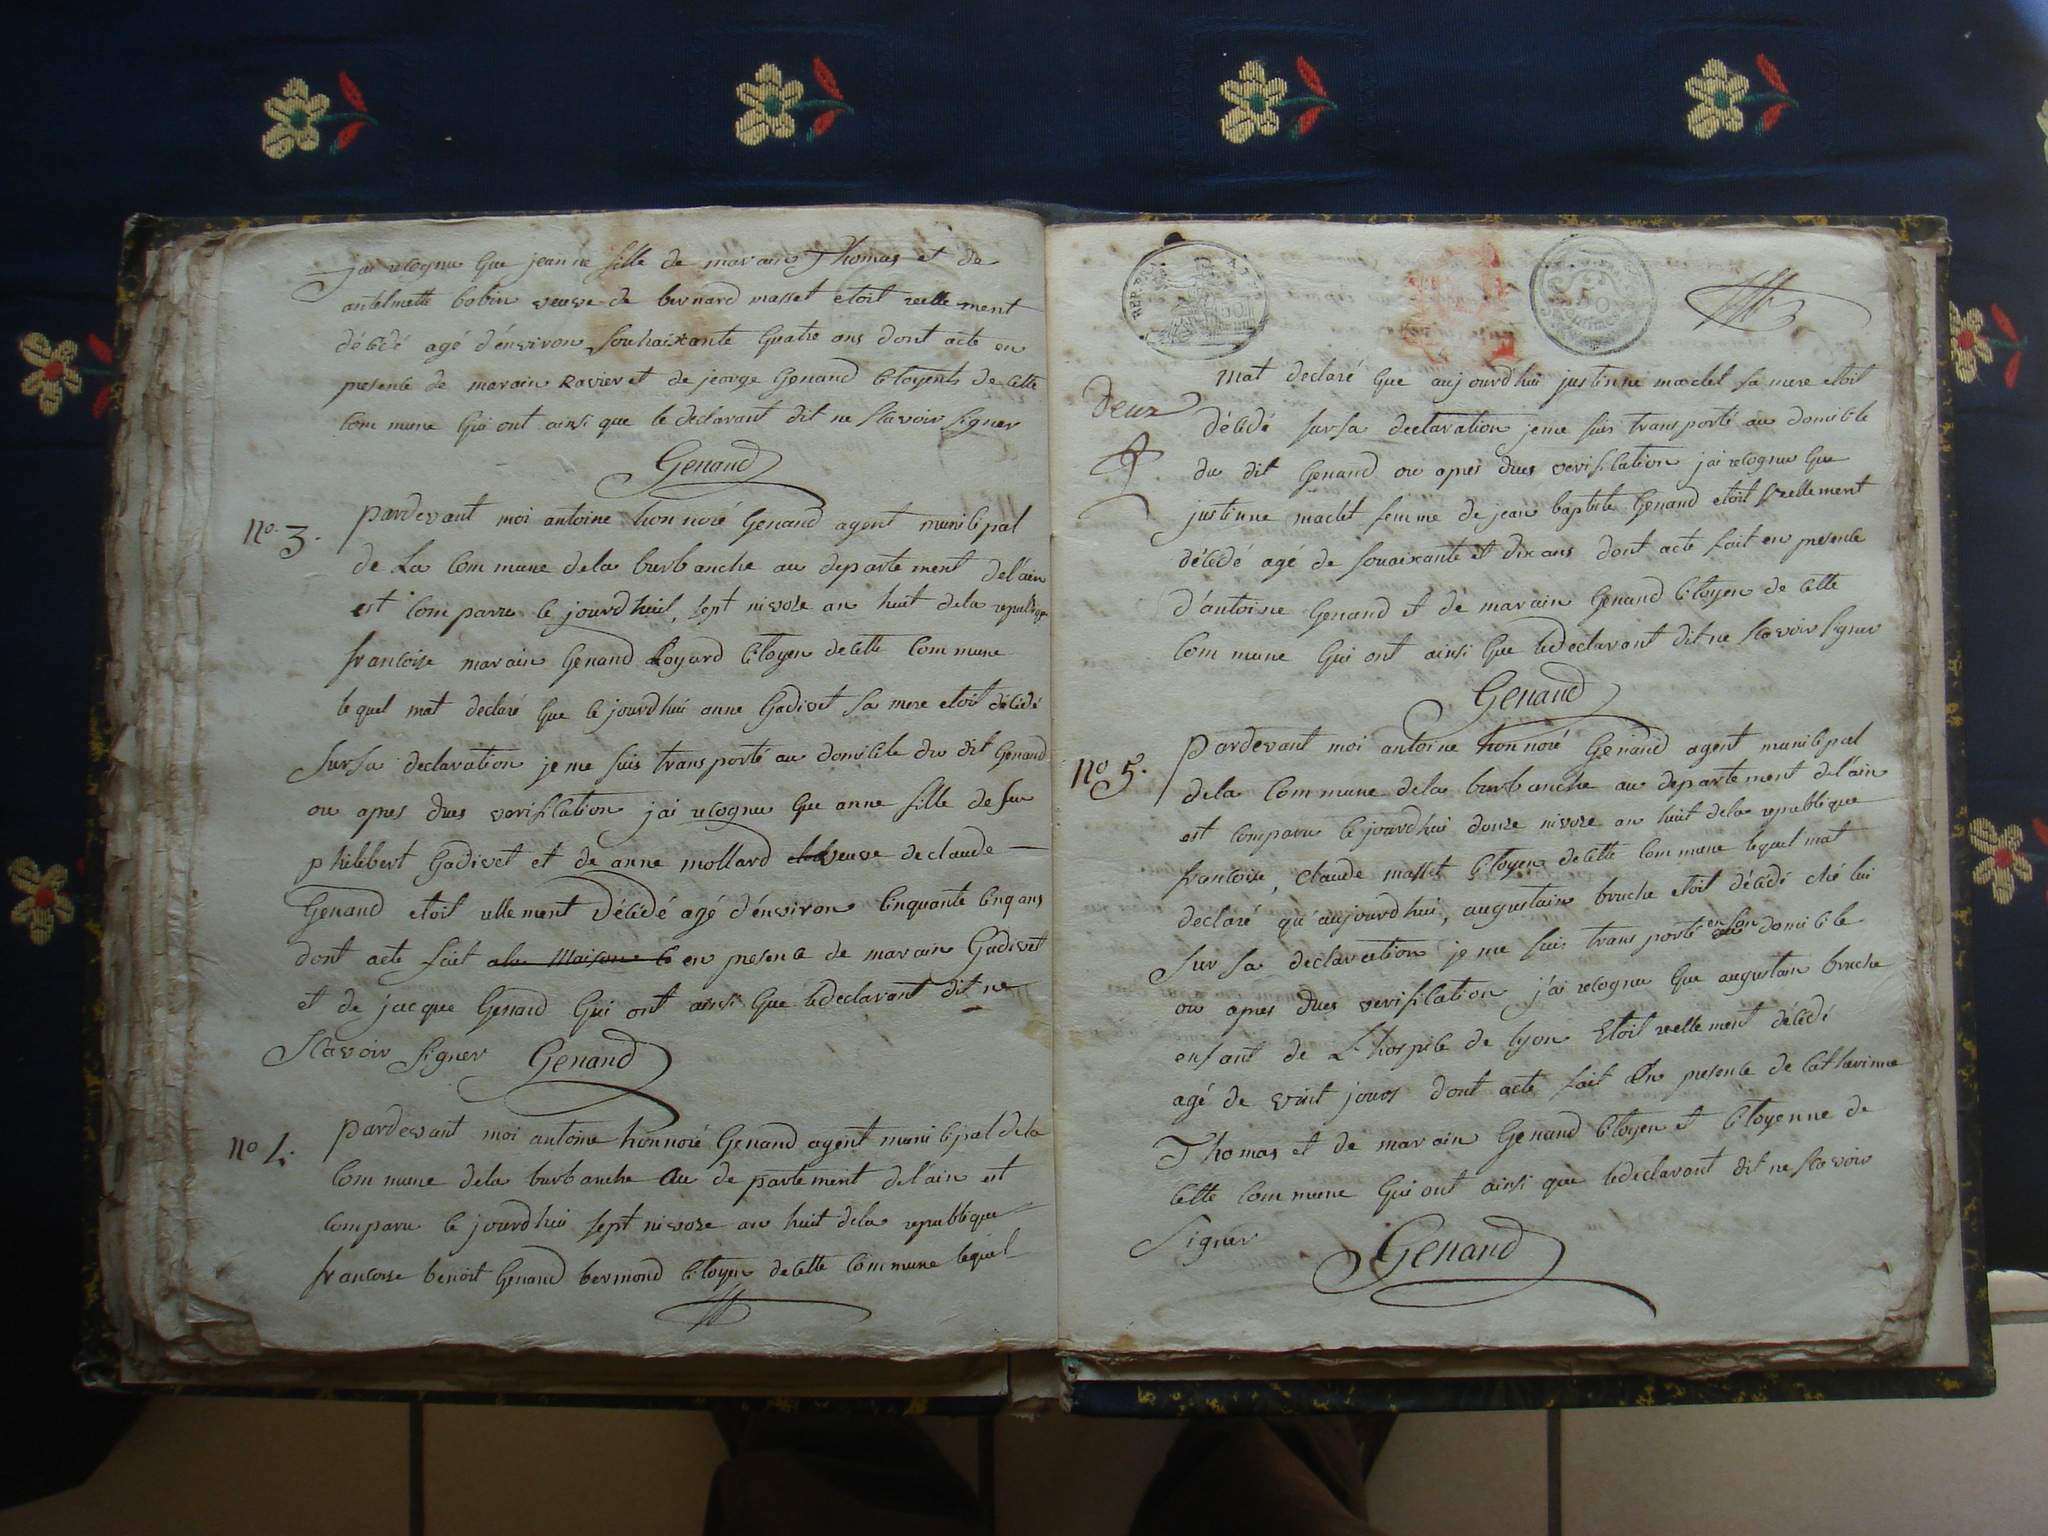 j'ai recognu que jeanne fille de marain Thomas et de
antelmette bobin veuve de bernard masset etoit reellement
décédé agé d'énviron souhaixante quatre ans dont acte en
presence de marain Ravier et de jeorge Genand citoyents de cette
commune qui ont ainsi que le declarant dit ne scavoir signer
Genand
no. 3.
pardevant moi antoine honnoré Genand agent municipal
de La commune dela burbanche au departement del'ain
est comparu ce jourdhuit, sept nivoze an huit dela republique
francoise marain Genand Royard citoyen decette commune
lequel mat declaré que ce jourdhui anne Gadivet sa mere etoit décédé
sursa declaration je me suis transporté au domicile du dit Genand
ou apres dues verification j'ai recognu que anne fille de feu
philibert Gadivet et de anne mollard veuve declaude
Genand etoit rellement décédé agé d'énviron cinquante cinq ans
dont acte fait ala Maison c en presence de marain Gadivet
et de jacque Genand qui ont ainsi que ledeclarant dit ne
scavoir signer Genand
no 4.
pardevant moi antoine honnoré Genand agent municipal dela
commune dela burbanche au departement del'ain est
comparu ce jourdhui sept nivoze an huit dela republique
francoise benoit Genand bermond citoyen decette commune lequel
REP. FRA.
50
50
centimes
Deux
mat declaré que aujourdhui justinne maclet sa mere etoit
décédé sursa declaration jeme suis transporté au domicile
du dit Genand ou apres dues verification j'ai recognu que
justinne maclet femme de jean baptiste Genand etoit réellement
décédé agé de souaixante et dix ans dont acte fait en presence
d'antoine Genand et de marain Genand citoyen de cette
commune qui ont ainsi que ledeclarant dit ne scavoir signer
Genand
no 5.
pardevant moi antoine honnoré Genand agent municipal
dela commune dela burbanche au departement del'ain
est comparu ce jourdhui douze nivoze an huit dela republique
francoise, claude masset citoyen decette commune lequel mat
declaré qu'aujourdhui, augustain bruche etoit décédé ché lui
sur sa declaration je me suis transporté en son domicile
ou apres dues verification j'ai recognu que augustain bruche
enfant de L'hospice de lyon Etoit reellement décédé
agé de vint jours dont acte fait En presence de catherinne
Thomas et de marain Genand citoyen et citoyenne de
cette commune qui ont ainsi que ledeclarant dit ne scavoir
signer
Genand